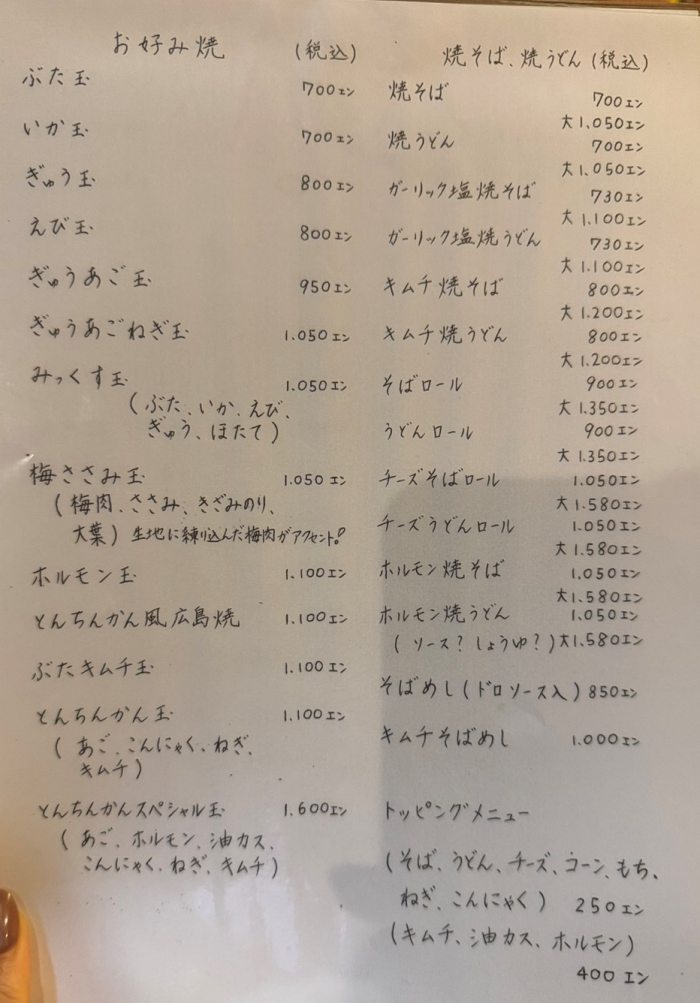 お好み焼 (税込)
ぶた玉 700エン
いか玉 700エン
ぎゅう玉 800エン
えび玉 800エン
ぎゅうあご玉 950エン
ぎゅうあごねぎ玉 1.050エン
みっくす玉 1.050エン
(ぶた、いか、えび、
ぎゅう、ほたて)
梅ささみ玉 1.050エン
(梅肉、ささみ、きざみのり、
大葉) 生地に練り込んだ梅肉がアクセント!
ホルモン玉 1.100エン
とんちんかん風広島焼 1.100エン
ぶたキムチ玉 1.100エン
とんちんかん玉 1.100エン
(あご、こんにゃく、ねぎ、
キムチ)
とんちんかんスペシャル玉 1.600エン
(あご、ホルモン、油カス、
こんにゃく、ねぎ、キムチ)
焼そば、焼うどん (税込)
焼そば 700エン
大1.050エン
焼うどん 700エン
大1.050エン
ガーリック塩焼そば 730エン
大1.100エン
ガーリック塩焼うどん 730エン
大1.100エン
キムチ焼そば 800エン
大1.200エン
キムチ焼うどん 800エン
大1.200エン
そばロール 900エン
大1.350エン
うどんロール 900エン
大1.350エン
チーズそばロール 1.050エン
大1.580エン
チーズうどんロール 1.050エン
大1.580エン
ホルモン焼そば 1.050エン
大1.580エン
ホルモン焼うどん 1.050エン
(ソース?しょうゆ?) 大1.580エン
そばめし(ドロソース入) 850エン
キムチそばめし 1.000エン
トッピングメニュー
(そば、うどん、チーズ、コーン、もち、
ねぎ、こんにゃく) 250エン
(キムチ、油カス、ホルモン)
400エン